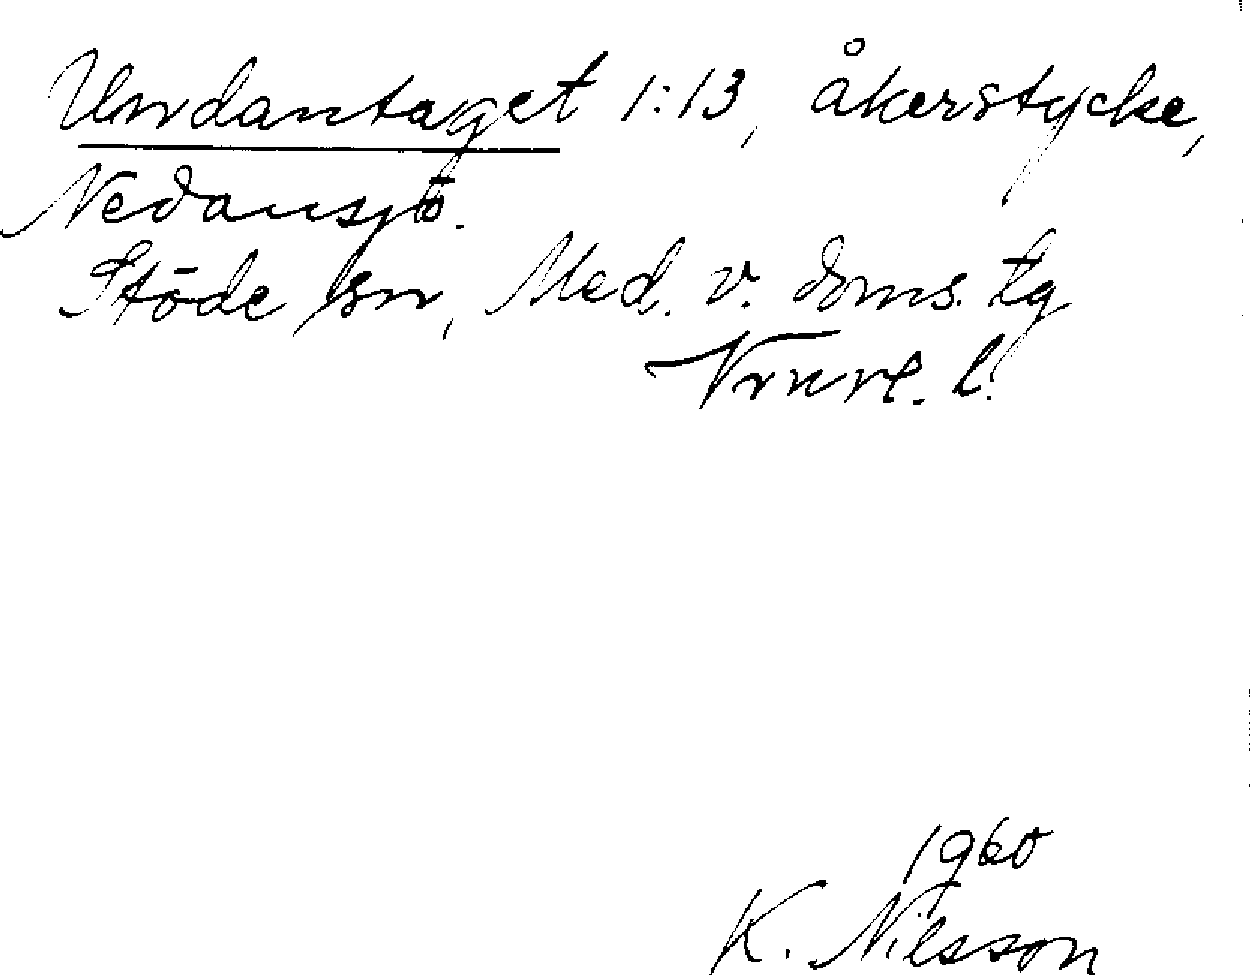 Undantaget 1:13, åkerstycke,
Nedansjö.
Stöde sn, Med. v. doms. tg
Vrnrl. l.
1960
K. Nilsson